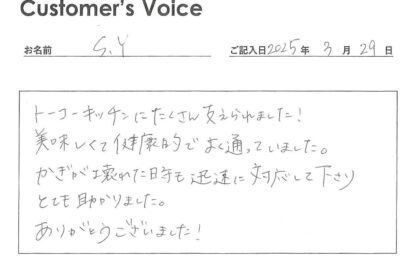 Customer's Voice
お名前 S.Y ご記入日2025年3月29日
トーコーキッチンにたくさん支えられました!
美味しくて健康的でよく通っていました。
かぎが壊れた時も迅速に対応して下さり
とても助かりました。
ありがとうございました!